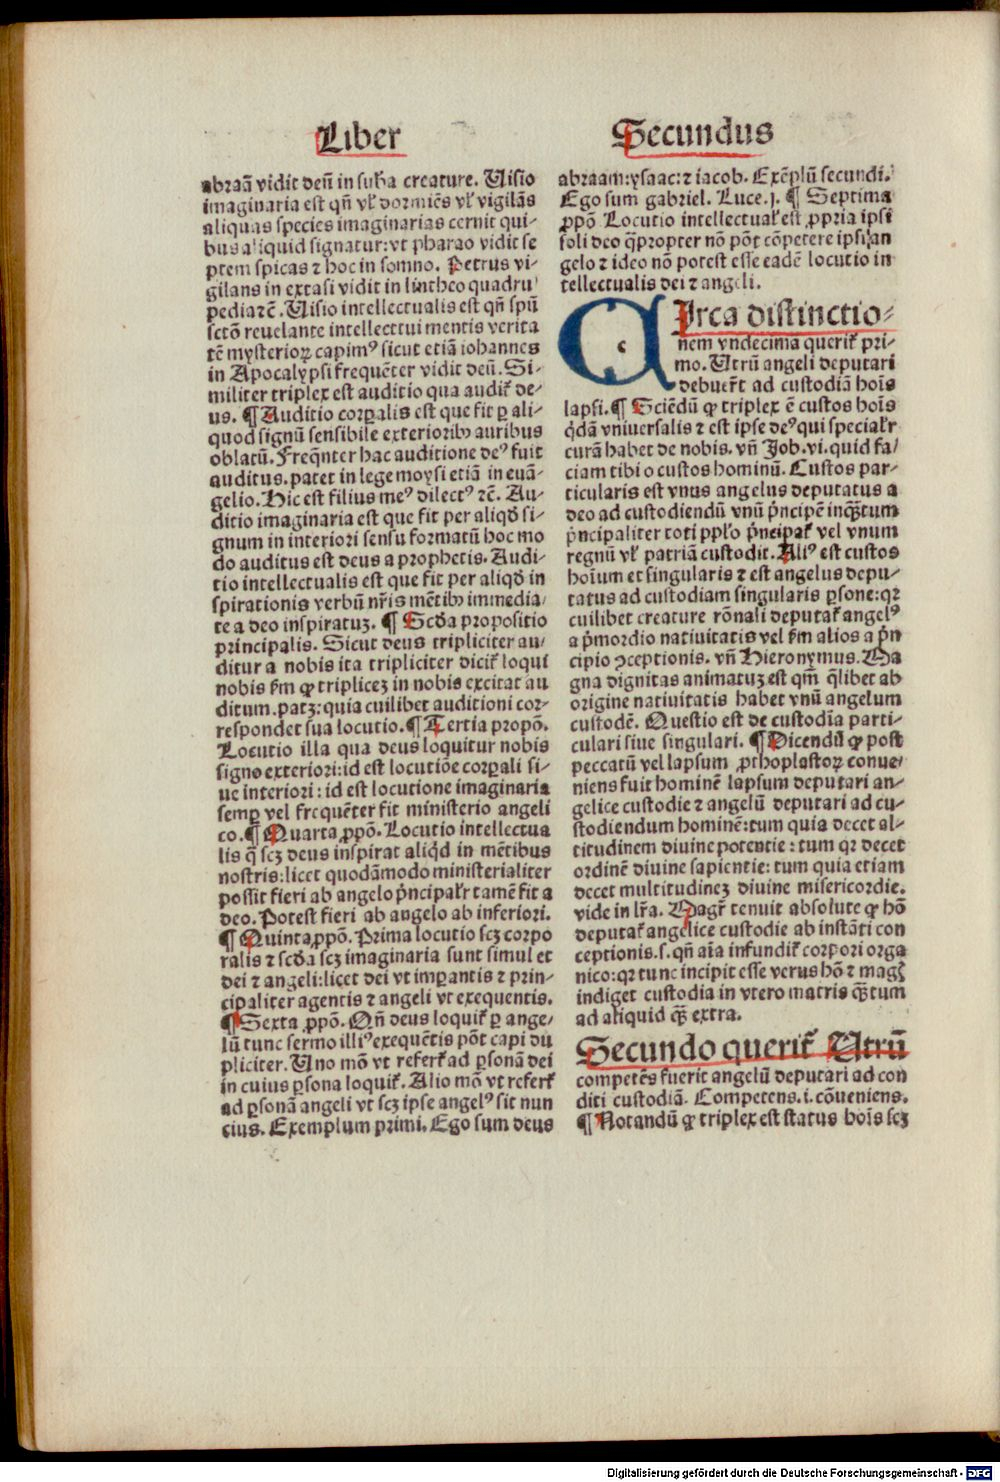 Liber Secundus
abraã vidit deũ in subͣ creature. Uisio
imaginaria est qñ vĺ dormiẽs vĺ vigilãs
aliquas species imaginarias cernit qui-
bus aliquid signatur: vt pharao vidit se
ptem spicas ⁊ hoc in somno. Petrus vi-
gilans in extasi vidit in lintheo quadru
pedia ⁊č. Uisio intellectualis est qñ spũ
sctõ reuelante intellectui mentis verita
tẽ mysterioꝝ capimꝰ sicut etiã iohannes
in Apocalypsi frequẽter vidit deũ. Si-
militer triplex est auditio qua audit̃ de-
us. ¶ Auditio corꝑalis est que fit ꝑ ali-
quod signũ sensibile exterioribꝫ auribus
oblatũ. Freqñter hac auditione deꝰ fuit
auditus. patet in lege moysi etiã in euã-
gelio. Hic est filius meꝰ dilectꝰ ⁊č. Au-
ditio imaginaria est que fit per aliqđ si-
gnum in interiori sensu formatũ hoc mo
do auditus est deus a prophetis. Audi-
tio intellectualis est que fit per aliqđ in
spirationis verbũ nr̃is mẽtibꝫ immedia-
te a deo inspiratuꝫ. ¶ Scđa propositio
principalis. Sicut deus tripliciter au-
ditur a nobis ita tripliciter dicit̃ loqui
nobis ẜm ꝙ tripliceꝫ in nobis excitat au
ditum. patꝫ: quia cuilibet auditioni cor-
respondet sua locutio. ¶ Tertia propõ.
Locutio illa qua deus loquitur nobis
signo exteriori: id est locutiõe corꝑali si-
ue interiori: id est locutione imaginaria
semꝑ vel frequẽter fit ministerio angeli
co. ¶ Quarta ꝓpõ. Locutio intellectua
lis q̃ scꝫ deus inspirat aliqđ in mẽtibus
nostris: licet quodãmodo ministerialiter
possit fieri ab angelo pͥncipalr̃ tamẽ fit a
deo. Potest fieri ab angelo ab inferiori.
¶ Quinta ꝓpõ. Prima locutio scꝫ corpo
ralis ⁊ scđa scꝫ imaginaria sunt simul et
dei ⁊ angeli: licet dei vt imꝑantis ⁊ prin-
cipaliter agentis ⁊ angeli vt exequentis.
¶ Sexta ꝓpõ. Qñ deus loquit̃ ꝑ ange-
lũ tunc sermo illiꝰ exequẽtis põt capi du
pliciter. Uno mõ vt refert̃ ad ꝑsonã dei
in cuius ꝑsona loquit̃. Alio mõ vt refert̃
ad ꝑsonã angeli vt scꝫ ipse angelꝰ sit nun
cius. Exemplum primi. Ego sum deus
abraam: ysaac: ⁊ iacob. Exẽplũ secundi.
Ego sum gabriel. Luce. j. ¶ Septima
ꝓpõ Locutio intellectual̃ est ꝓpria ipsi
soli deo q̃propter nõ põt cõpetere ipsi an
gelo ⁊ ideo nõ potest esse eadẽ locutio in
tellectualis dei ⁊ angeli.
c
Irca distinctio-
nem vndecima querit̃ pri-
mo. Utrũ angeli deputari
debuer̃t ad custodiã hoĩs
lapsi. ¶ Sciẽdũ ꝙ triplex ẽ custos hoĩs
q̇dã vniuersalis ⁊ est ipse deꝰ qui specialr̃
curã habet de nobis. vñ Job. vi. quid fa-
ciam tibi o custos hominũ. Custos par-
ticularis est vnus angelus deputatus a
deo ad custodiendũ vnũ pͥncipẽ inqͣꝫtum
pͥncipaliter toti pplo pͥncipat̃ vel vnum
regnũ vĺ patriã custodit. Aliꝰ est custos
hoĩum et singularis ⁊ est angelus depu-
tatus ad custodiam singularis ꝑsone: qꝛ
cuilibet creature rõnali deputat̃ angelꝰ
a pͥmordio natiuitatis vel ẜm alios a pͥn
cipio ꝯceptionis. vñ Hieronymus. Ma
gna dignitas animatuꝫ est qm̃ q̃libet ab
origine natiuitatis habet vnũ angelum
custodẽ. Questio est de custodia parti-
culari siue singulari. ¶ Dicendũ ꝙ post
peccatũ vel lapsum ꝓthoplastoꝝ conue-
niens fuit hominẽ lapsum deputari an-
gelice custodie ⁊ angelũ deputari ad cu-
stodiendum hominẽ: tum quia decet al-
titudinem diuine potentie: tum qꝛ decet
ordinẽ diuine sapientie: tum quia etiam
decet multitudineꝫ diuine misericordie.
vide in lr̃a. Magr̃ tenuit absolute ꝙ hõ
deputat̃ angelice custodie ab instãti con
ceptionis. s. qñ aĩa infundit̃ corpori orga
nico: qꝛ tunc incipit esse verus hõ ⁊ magꝭ
indiget custodia in vtero matris qͣꝫtum
ad aliquid qͣꝫ extra.
Secundo querit̃ Utrũ
competẽs fuerit angelũ deputari ad con
diti custodiã. Competens. i. cõueniens.
¶ Notandũ ꝙ triplex est status hoĩs scꝫ
Digitalisierung gefördert durch die Deutsche Forschungsgemeinschaft - DFG